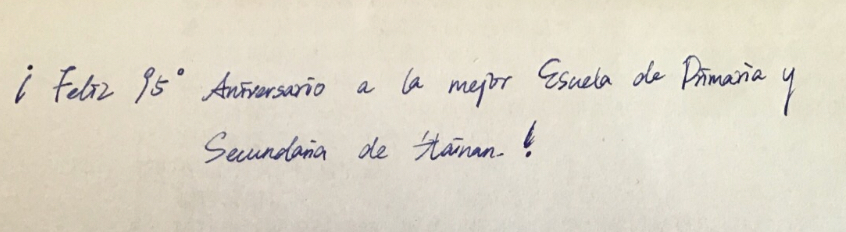 ¡ Feliz 95° Aniversario a la mejor Escuela de Primaria y
Secundaria de Hainan. !